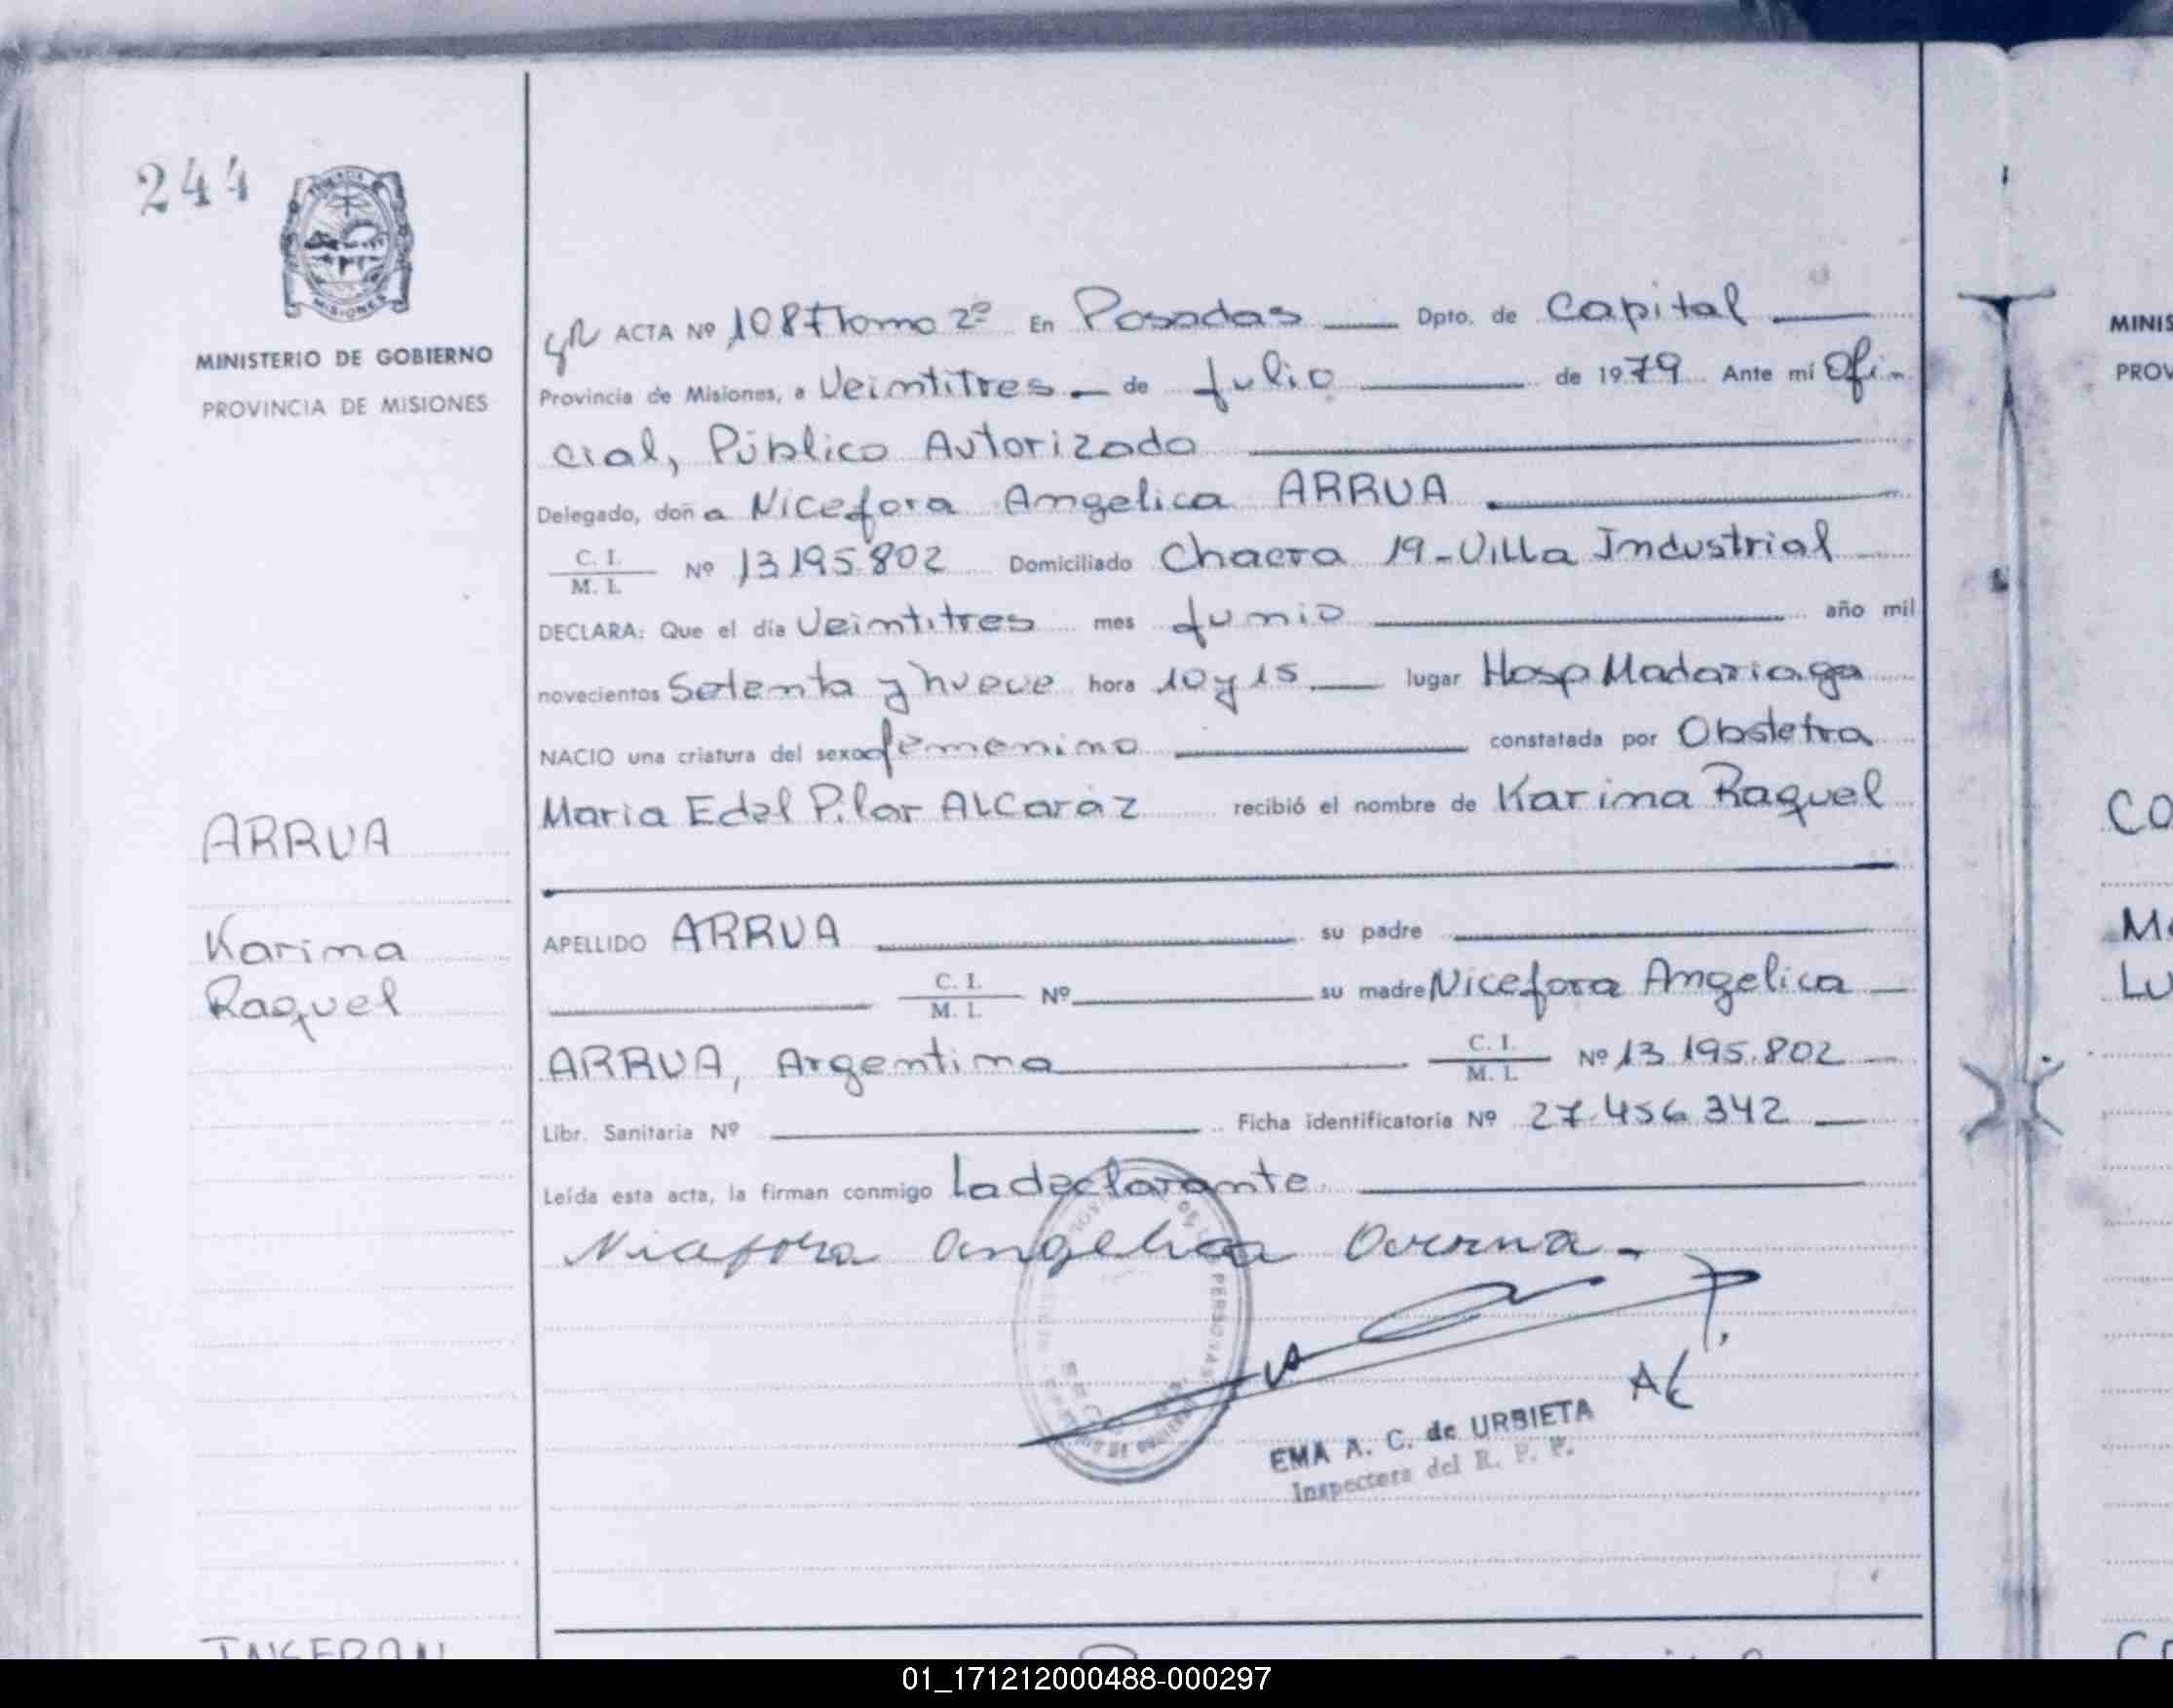 244
MISIONES
MINISTERIO DE GOBIERNO
PROVINCIA DE MISIONES
ACTA Nº 1087 Tomo 2º En Posadas Dpto. de Capital
Provincia de Misiones, a Veintitres de Julio de 1979 Ante mí Ofi-
cial, Público Autorizado
Delegado, doña Nicefora Angelica ARRUA
C. I.
M. I. Nº 13.195.802 Domiciliado Chacra 19-Villa Industrial
DECLARA: Que el día Veintitres mes Junio año mil
novecientos Setenta y nueve hora 10 y 15 lugar Hosp Madariaga
NACIO una criatura del sexo femenino constatada por Obstetra
Maria Edel Pilar ALCaráz recibió el nombre de Karina Raquel
ARRUA
Karina
Raquel
APELLIDO ARRUA su padre
C. I.
M. I. Nº su madre Nicefora Angelica
ARRUA, Argentina C. I.
M. I. Nº 13.195.802
Libr. Sanitaria Nº Ficha identificatoria Nº 27.456.342
Leída esta acta, la firman conmigo La declarante
Nicefora Angelica Arrua.-
PERSONAS
EMA A. C. de URBIETA
Inspectora del R. P. P.
MINIS
PROV
CO
Lu
01_171212000488-000297